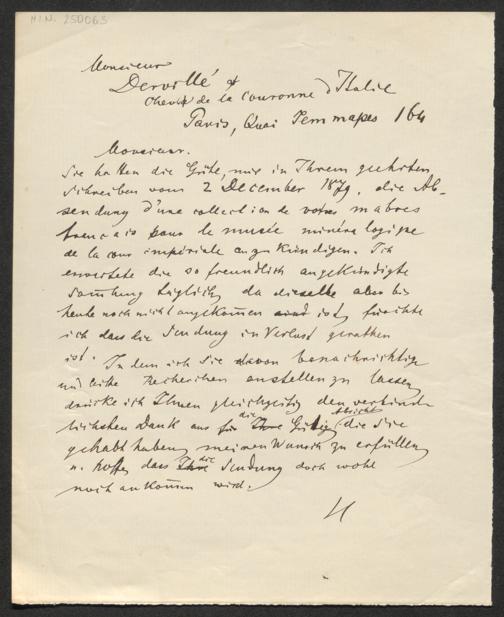 H.I.N. 250063
Monsieur
Dervillé &
Cheval de la couronne d'Italie
Paris, Quai Jemmapes 164
Monsieur.
Sie hatten die Güte, mir in Ihrem geehrten
Schreiben vom 2 December 1879, die Ab-
sendung d'une collection de votres mabres
français pour le musée minéralogique
de la cour impériale anzukündigen. Ich
erwartete die so freundlich angekündigte
Samlung täglich, da dieselbe aber bis
heute noch nicht angekommen ist, fürchte
ich dass die Sendung in Verlust gerathen
ist. Indem ich Sie davon benachrichtige
und bitte Recherchen anstellen zu lassen
drücke ich Ihnen gleichzeitig den verbind-
lichsten Dank aus für die Ihre Güte, die Sie
gehabt haben, meinen Wunsch zu erfüllen
u. hoffe, dass Ihre die Sendung doch wohl
noch ankommen wird.
H